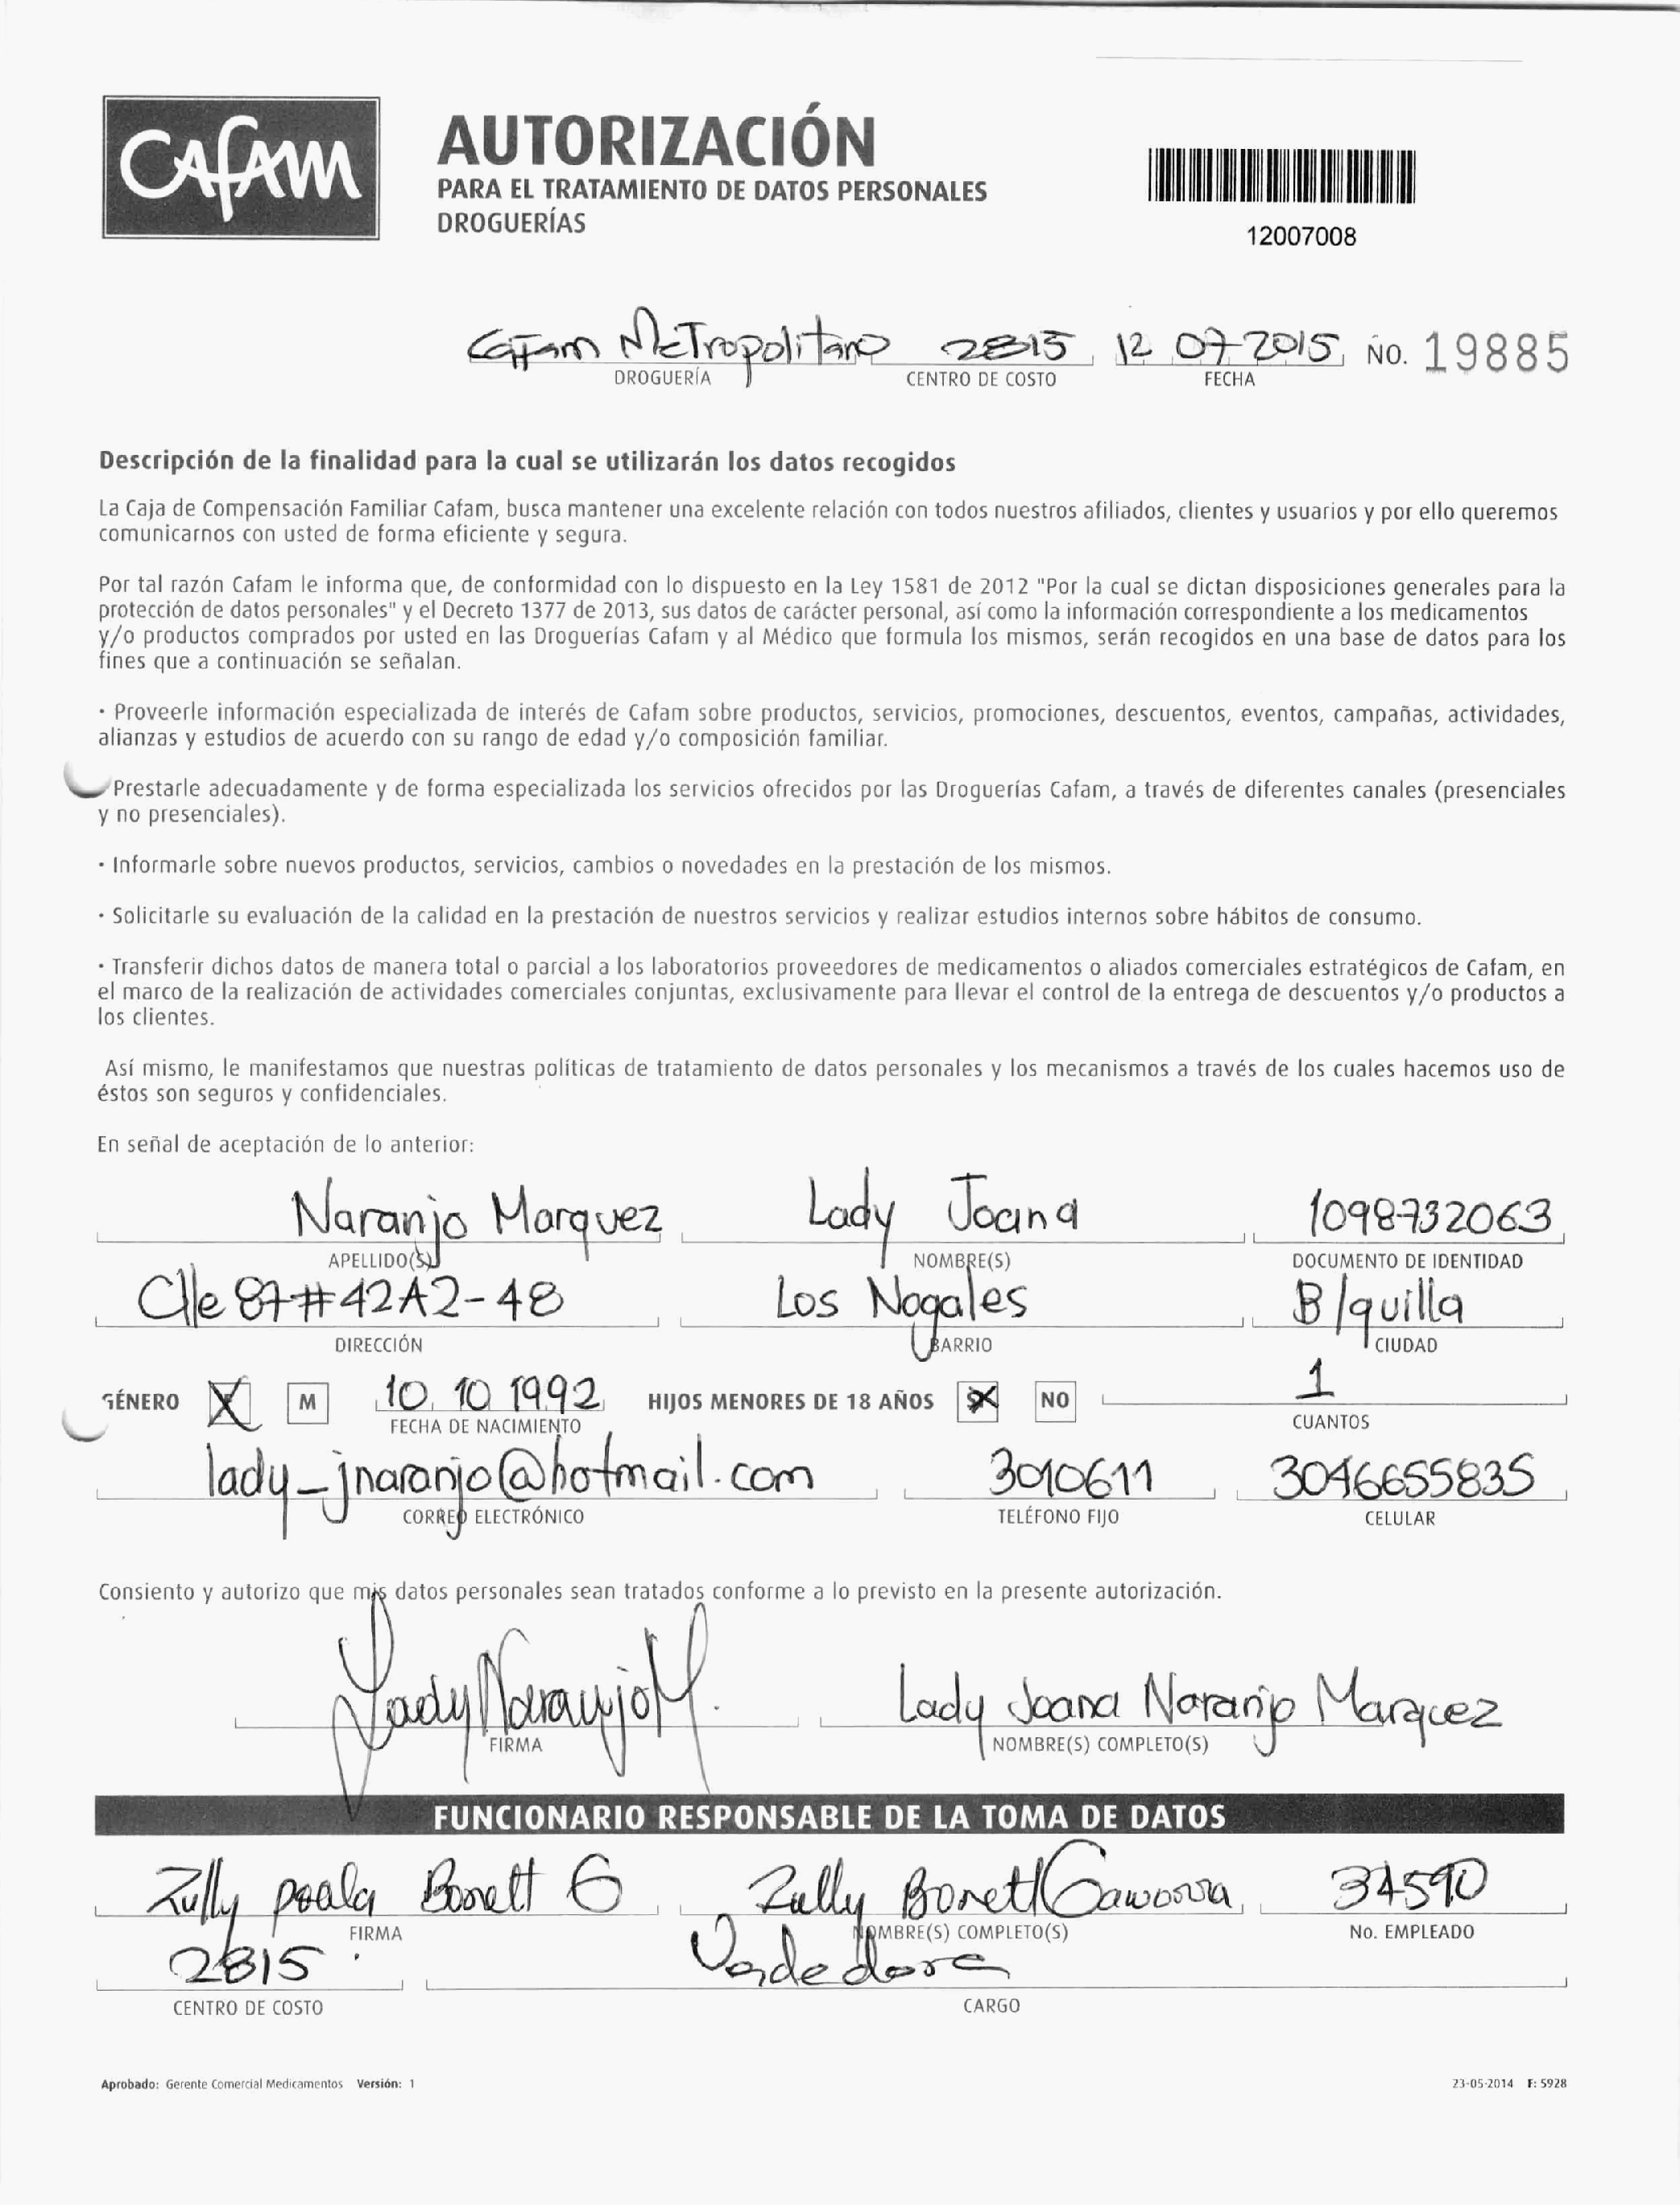 CAFAM
AUTORIZACIÓN
PARA EL TRATAMIENTO DE DATOS PERSONALES
DROGUERÍAS
12007008
Cafam Metropolitano 2815 12 07 2015 NO. 19885
DROGUERÍA CENTRO DE COSTO FECHA
Descripción de la finalidad para la cual se utilizarán los datos recogidos
La Caja de Compensación Familiar Cafam, busca mantener una excelente relación con todos nuestros afiliados, clientes y usuarios y por ello queremos
comunicarnos con usted de forma eficiente y segura.
Por tal razón Cafam le informa que, de conformidad con lo dispuesto en la Ley 1581 de 2012 "Por la cual se dictan disposiciones generales para la
protección de datos personales" y el Decreto 1377 de 2013, sus datos de carácter personal, así como la información correspondiente a los medicamentos
y/o productos comprados por usted en las Droguerías Cafam y al Médico que formula los mismos, serán recogidos en una base de datos para los
fines que a continuación se señalan.
· Proveerle información especializada de interés de Cafam sobre productos, servicios, promociones, descuentos, eventos, campañas, actividades,
alianzas y estudios de acuerdo con su rango de edad y/o composición familiar.
Prestarle adecuadamente y de forma especializada los servicios ofrecidos por las Droguerías Cafam, a través de diferentes canales (presenciales
y no presenciales).
· Informarle sobre nuevos productos, servicios, cambios o novedades en la prestación de los mismos.
· Solicitarle su evaluación de la calidad en la prestación de nuestros servicios y realizar estudios internos sobre hábitos de consumo.
· Transferir dichos datos de manera total o parcial a los laboratorios proveedores de medicamentos o aliados comerciales estratégicos de Cafam, en
el marco de la realización de actividades comerciales conjuntas, exclusivamente para llevar el control de la entrega de descuentos y/o productos a
los clientes.
Así mismo, le manifestamos que nuestras políticas de tratamiento de datos personales y los mecanismos a través de los cuales hacemos uso de
éstos son seguros y confidenciales.
En señal de aceptación de lo anterior:
Naranjo Marquez Lady Joana 1098732063
APELLIDO(S) NOMBRE(S) DOCUMENTO DE IDENTIDAD
Clle 87#42A2-48 Los Nogales B/quilla
DIRECCIÓN BARRIO CIUDAD
GÉNERO X M 10 10 1992 HIJOS MENORES DE 18 AÑOS X NO 1
FECHA DE NACIMIENTO CUANTOS
lady_jnaranjo@hotmail.com 3010611 3046655835
CORREO ELECTRÓNICO TELÉFONO FIJO CELULAR
Consiento y autorizo que mis datos personales sean tratados conforme a lo previsto en la presente autorización.
Lady Naranjo M. Lady Joana Naranjo Marquez
FIRMA NOMBRE(S) COMPLETO(S)
FUNCIONARIO RESPONSABLE DE LA TOMA DE DATOS
Zully paola Bonett G Zully Bonett 34590
FIRMA NOMBRE(S) COMPLETO(S) No. EMPLEADO
2815 Vendedora
CENTRO DE COSTO CARGO
Aprobado: Gerente Comercial Medicamentos Versión: 1 23-05-2014 F: 5928